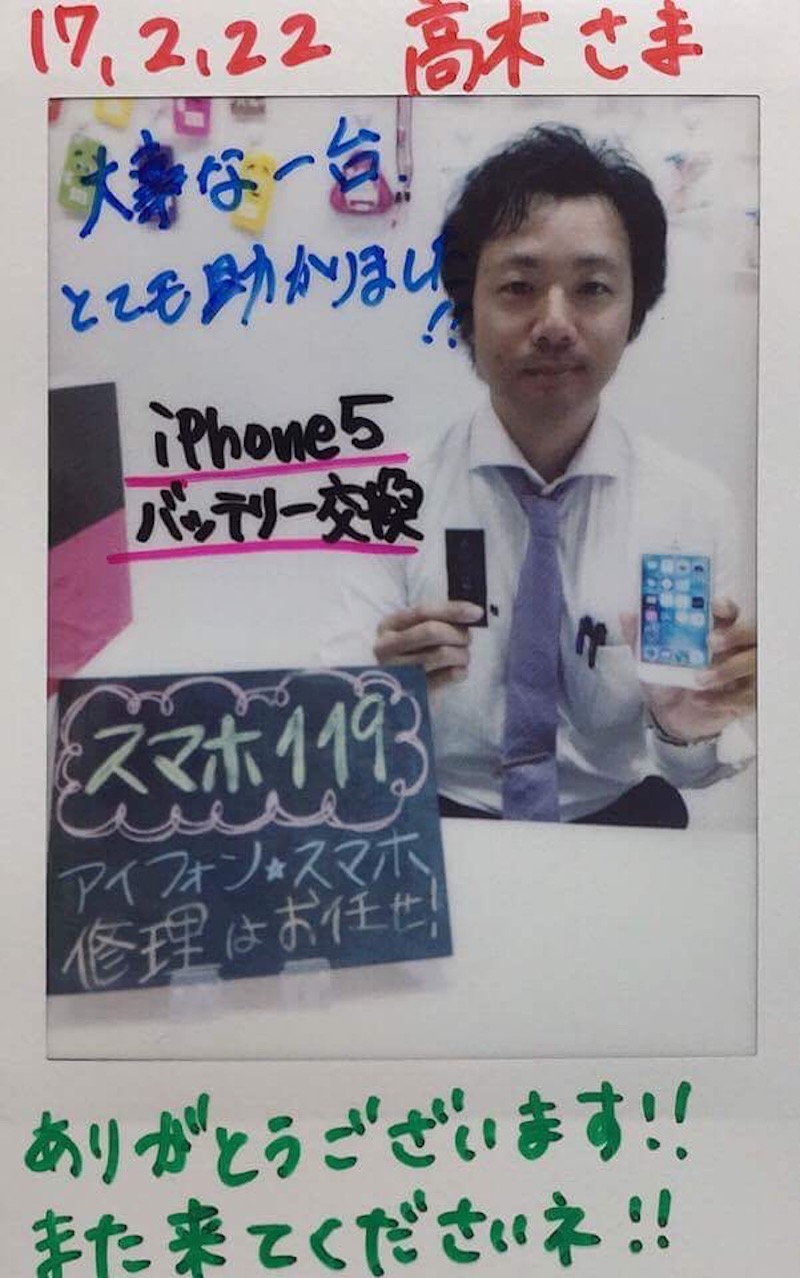 17,2,22 高木さま
大事な一台.
とても助かりました!!
iPhone5
バッテリー交換
スマホ119
アイフォン★スマホ
修理はお任せ!
ありがとうございます!!
また来てくださいネ!!